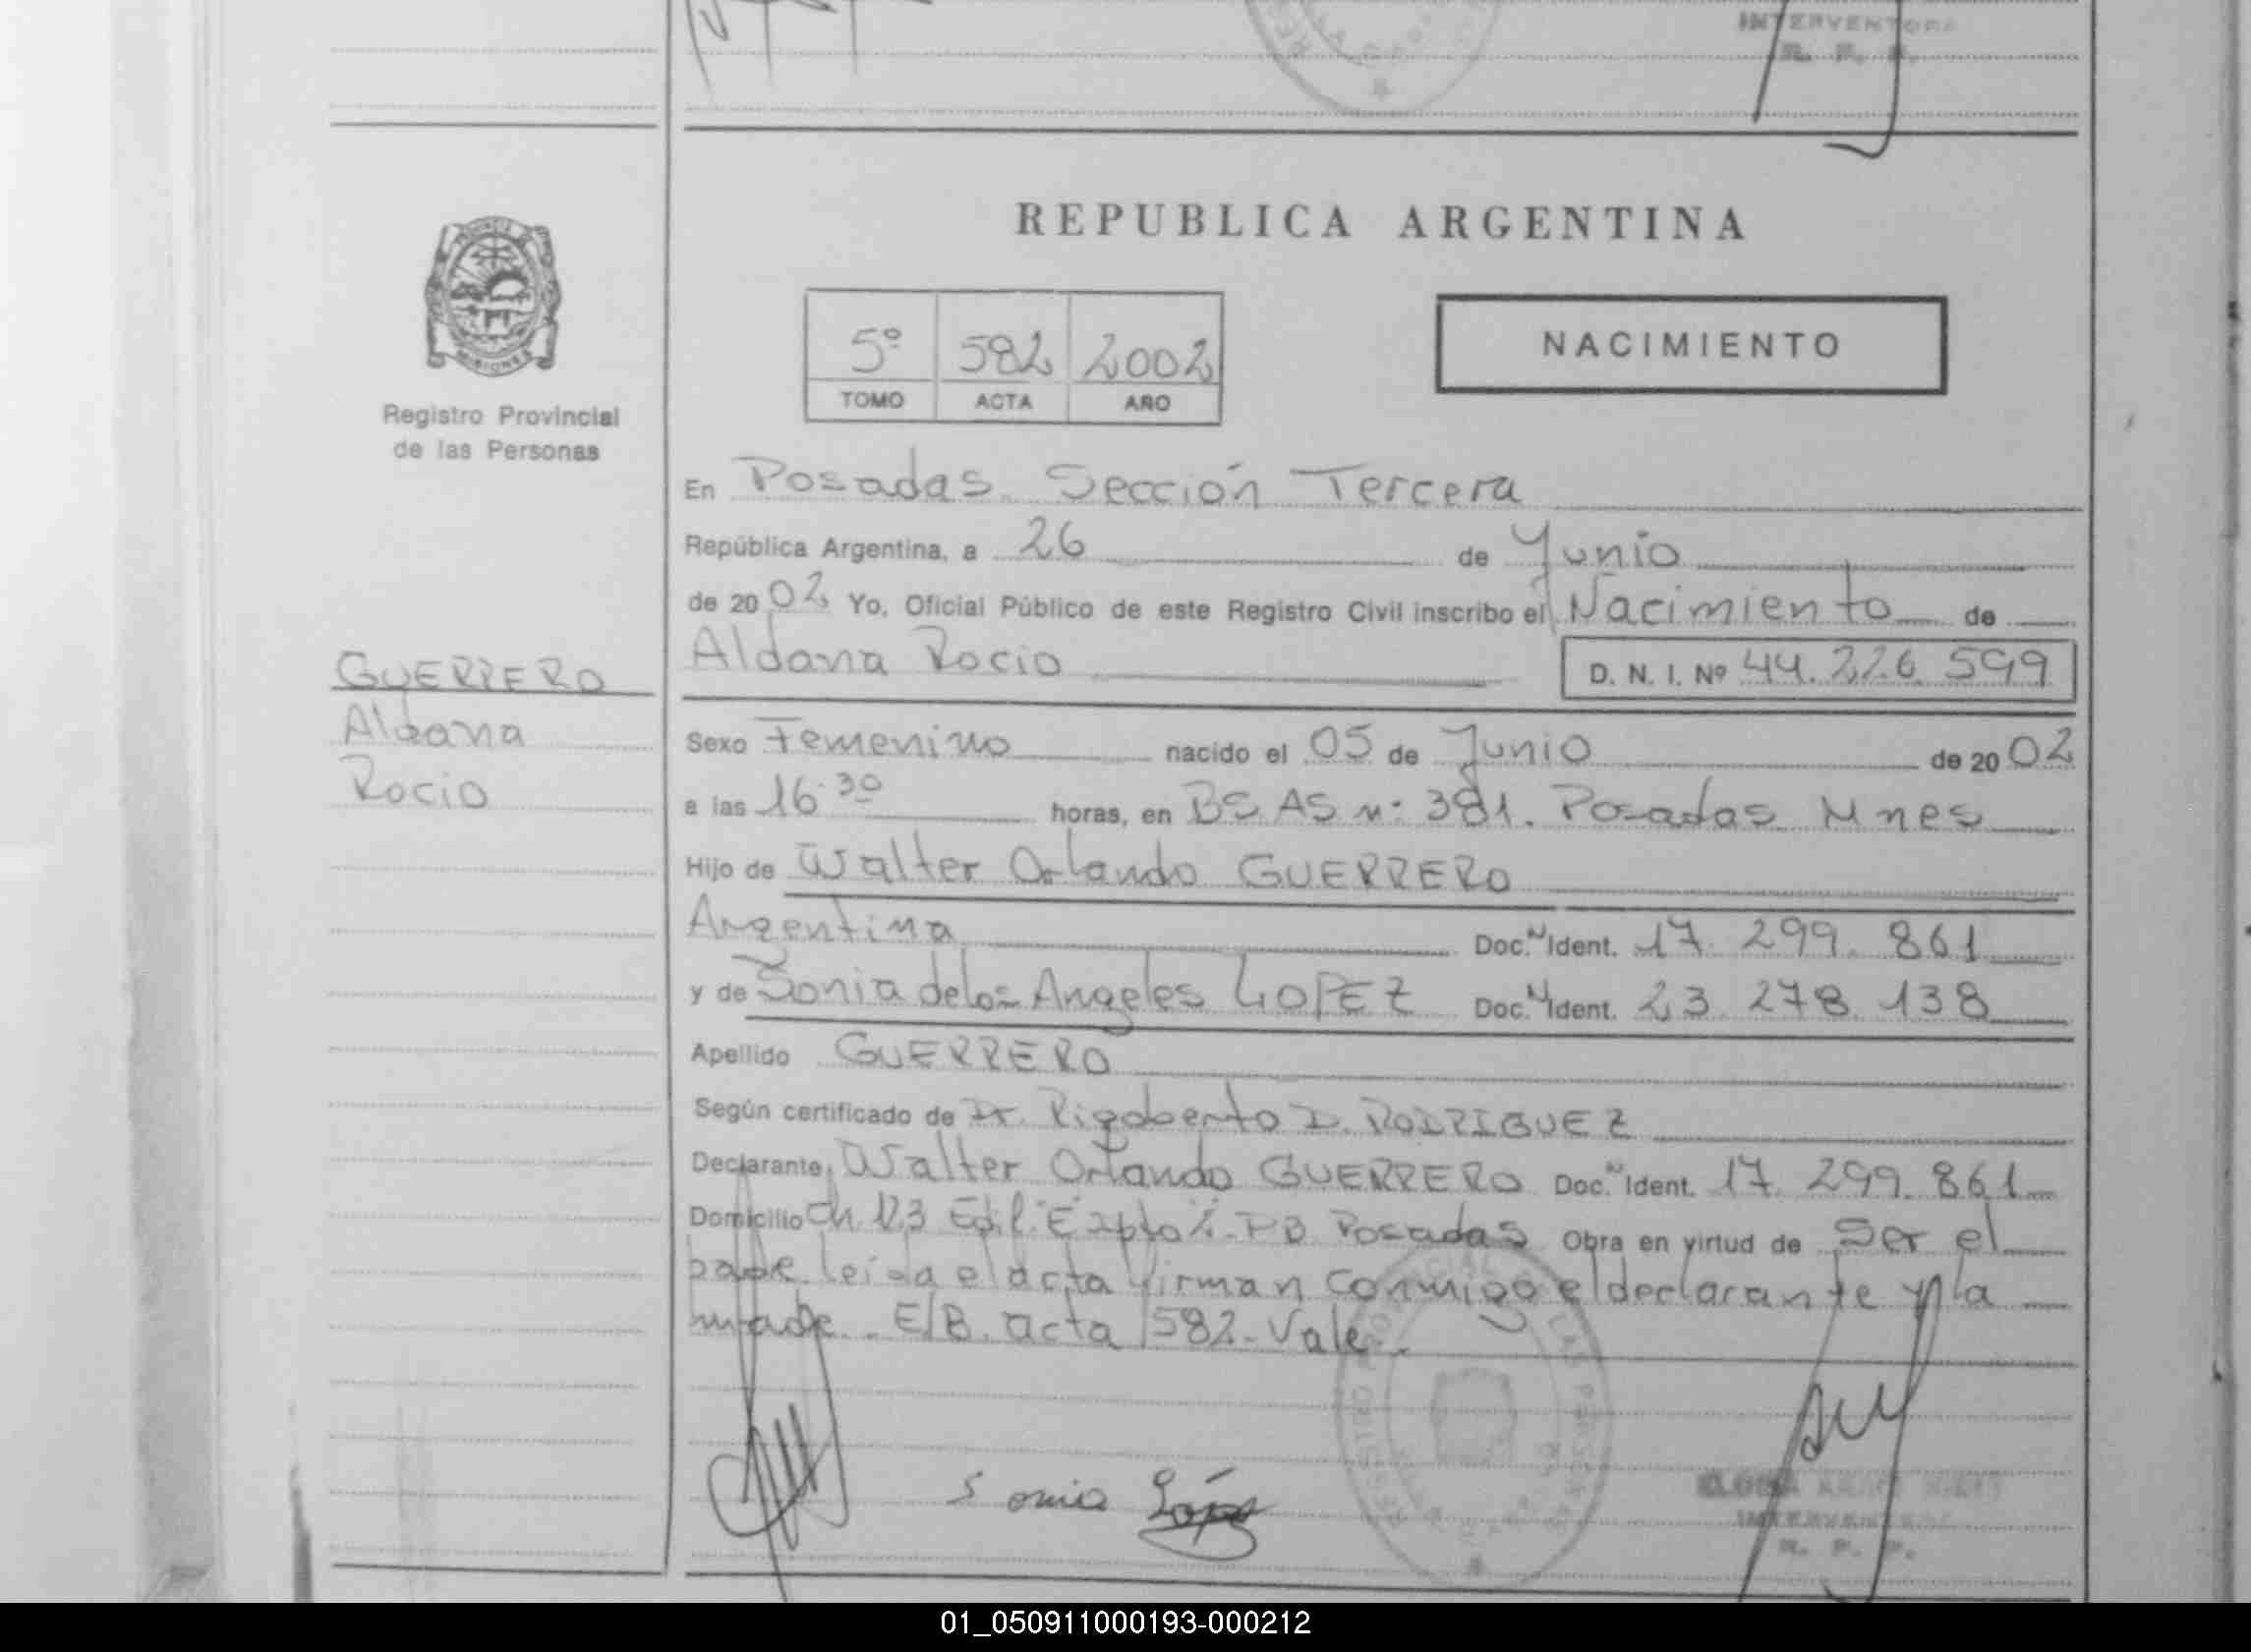 INTERVENTORA
R. P. P.
REPUBLICA ARGENTINA
5º 582 2002
TOMO ACTA AÑO
NACIMIENTO
Registro Provincial
de las Personas
En Posadas Sección Tercera
República Argentina, a 26 de Junio
de 2002 Yo, Oficial Público de este Registro Civil inscribo el Nacimiento de
Aldana Rocio D. N. I. Nº 44.226.599
GUERRERO
Aldana
Rocio
Sexo Femenino nacido el 05 de Junio de 2002
a las 16:30 horas, en BS AS n: 381. Posadas Mnes
Hijo de Walter Orlando GUERRERO
Argentina Doc. N Ident. 17.299.861
y de Sonia de los Angeles LOPEZ Doc. N Ident. 23.278.138
Apellido GUERRERO
Según certificado de Dr. Rigoberto D. RODRIGUEZ
Declarante Walter Orlando GUERRERO Doc. N Ident. 17.299.861
Domicilio Ch. 123 Edif. E PB Posadas Obra en virtud de Ser el
padre leida el acta firman conmigo el declarante y la
madre. E/B. acta 582. Vale.
Sonia López
INTERVENTORA
R. P. P.
01_050911000193-000212